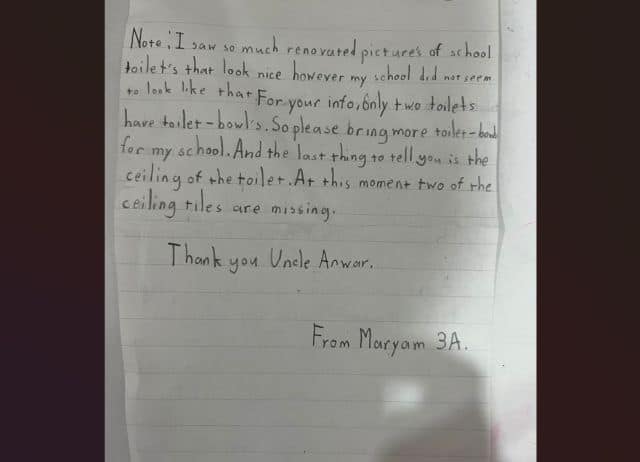 Note: I saw so much renovated pictures of school
toilet's that look nice however my school did not seem
to look like that For your info, Only two toilets
have toilet-bowl's. So please bring more toilet-bowl
for my school. And the last thing to tell you is the
ceiling of the toilet. At this moment two of the
ceiling tiles are missing.
Thank you Uncle Anwar.
From Maryam 3A.